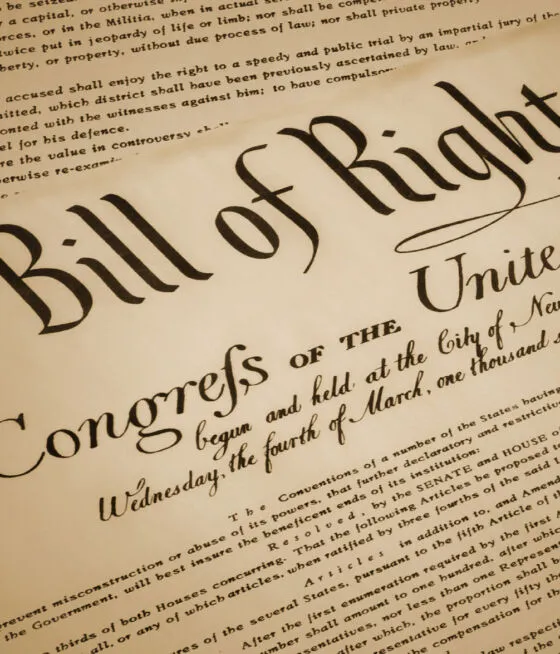 be seized
a capital, or otherwise
orces, or in the Militia, when in actual
twice put in jeopardy of life or limb; nor shall be
berty, or property, without due process of law; nor shall private
accused shall enjoy the right to a speedy and public trial by an impartial jury of the
mitted, which district shall have been previously ascertained by law,
onted with the witnesses against him; to have
el for his defence.
re the value in controversy
erwise
Bill of Right
Congreſs OF THE Unite
begun and held at the City of
Wednesday, the fourth of March, one thousand s
The Conventions of a number of the States having
prevent misconstruction or abuse of its powers, that further declaratory and
the Government, will best insure the beneficent ends of its institution:
Resolved, by the SENATE and HOUSE of
thirds of both Houses concurring. That the following Articles be proposed to
all, or any of which articles, when ratified by three fourths of the said
Articles in addition to, and
res of the several States, pursuant to the fifth Article of
After the first enumeration required by the first
umber shall amount to one hundred, after which
sentatives, nor less than one
after which, the proportion shall
resentative for every fifty
the compensation for
law